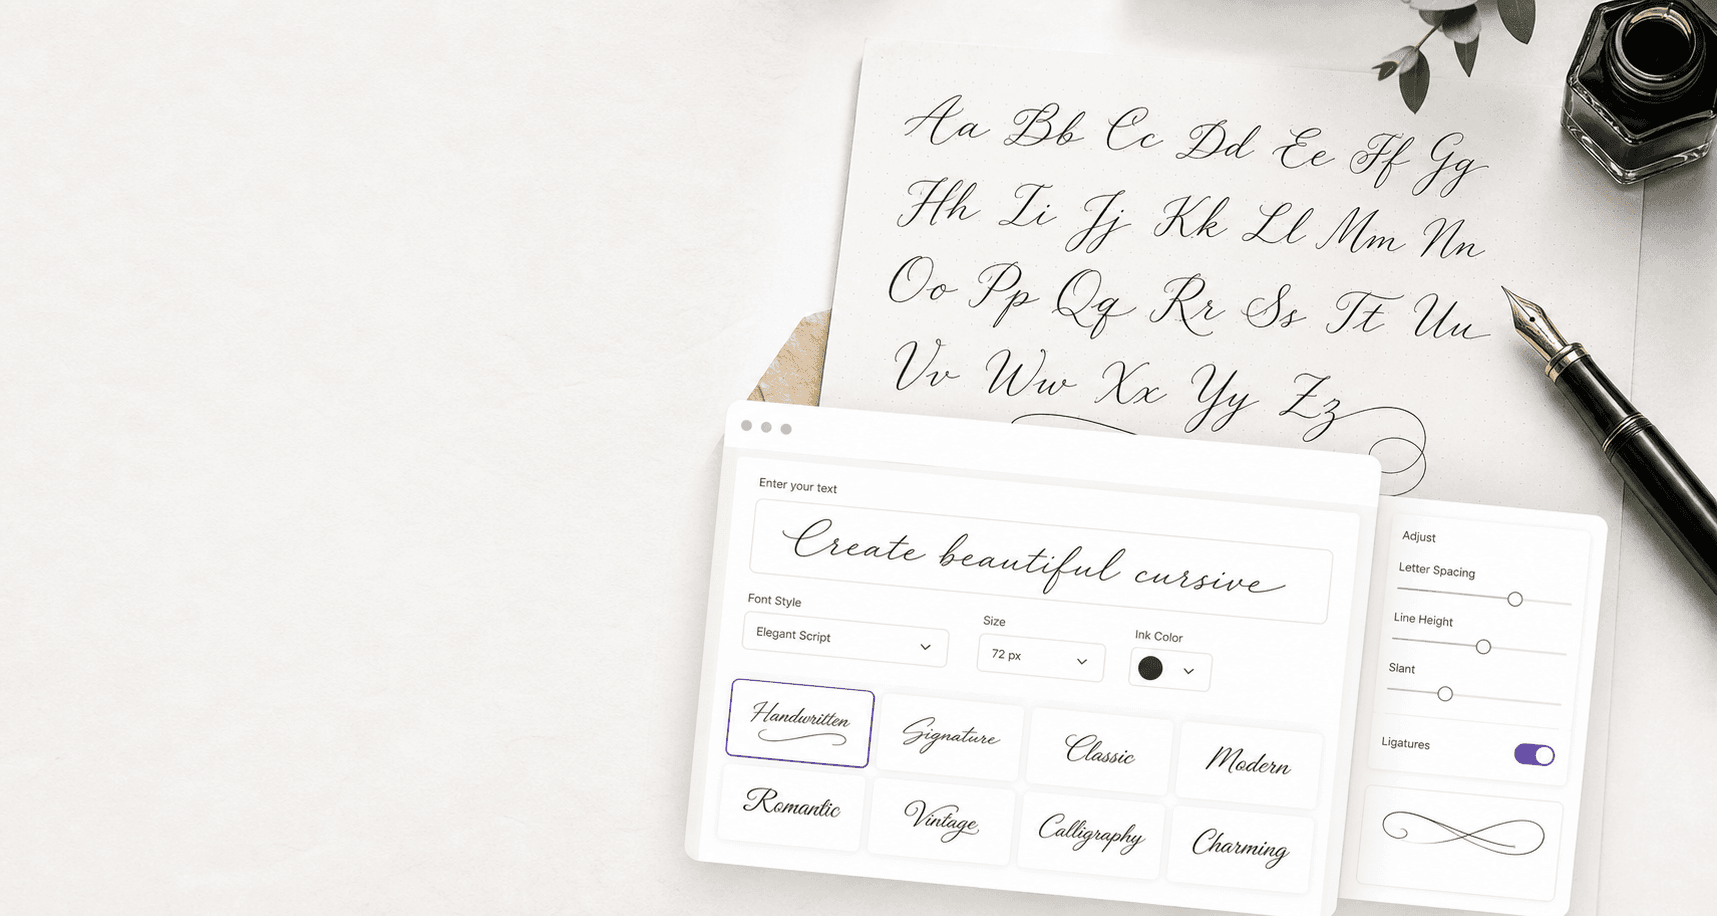 Aa Bb Cc Dd Ee Ff Gg
Hh Ii Jj Kk Ll Mm Nn
Oo Pp Qq Rr Ss Tt Uu
Vv Ww Xx Yy Zz
Enter your text
Create beautiful cursive
Font Style
Size
Ink Color
Elegant Script
72 px
Handwritten
Signature
Classic
Modern
Romantic
Vintage
Calligraphy
Charming
Adjust
Letter Spacing
Line Height
Slant
Ligatures